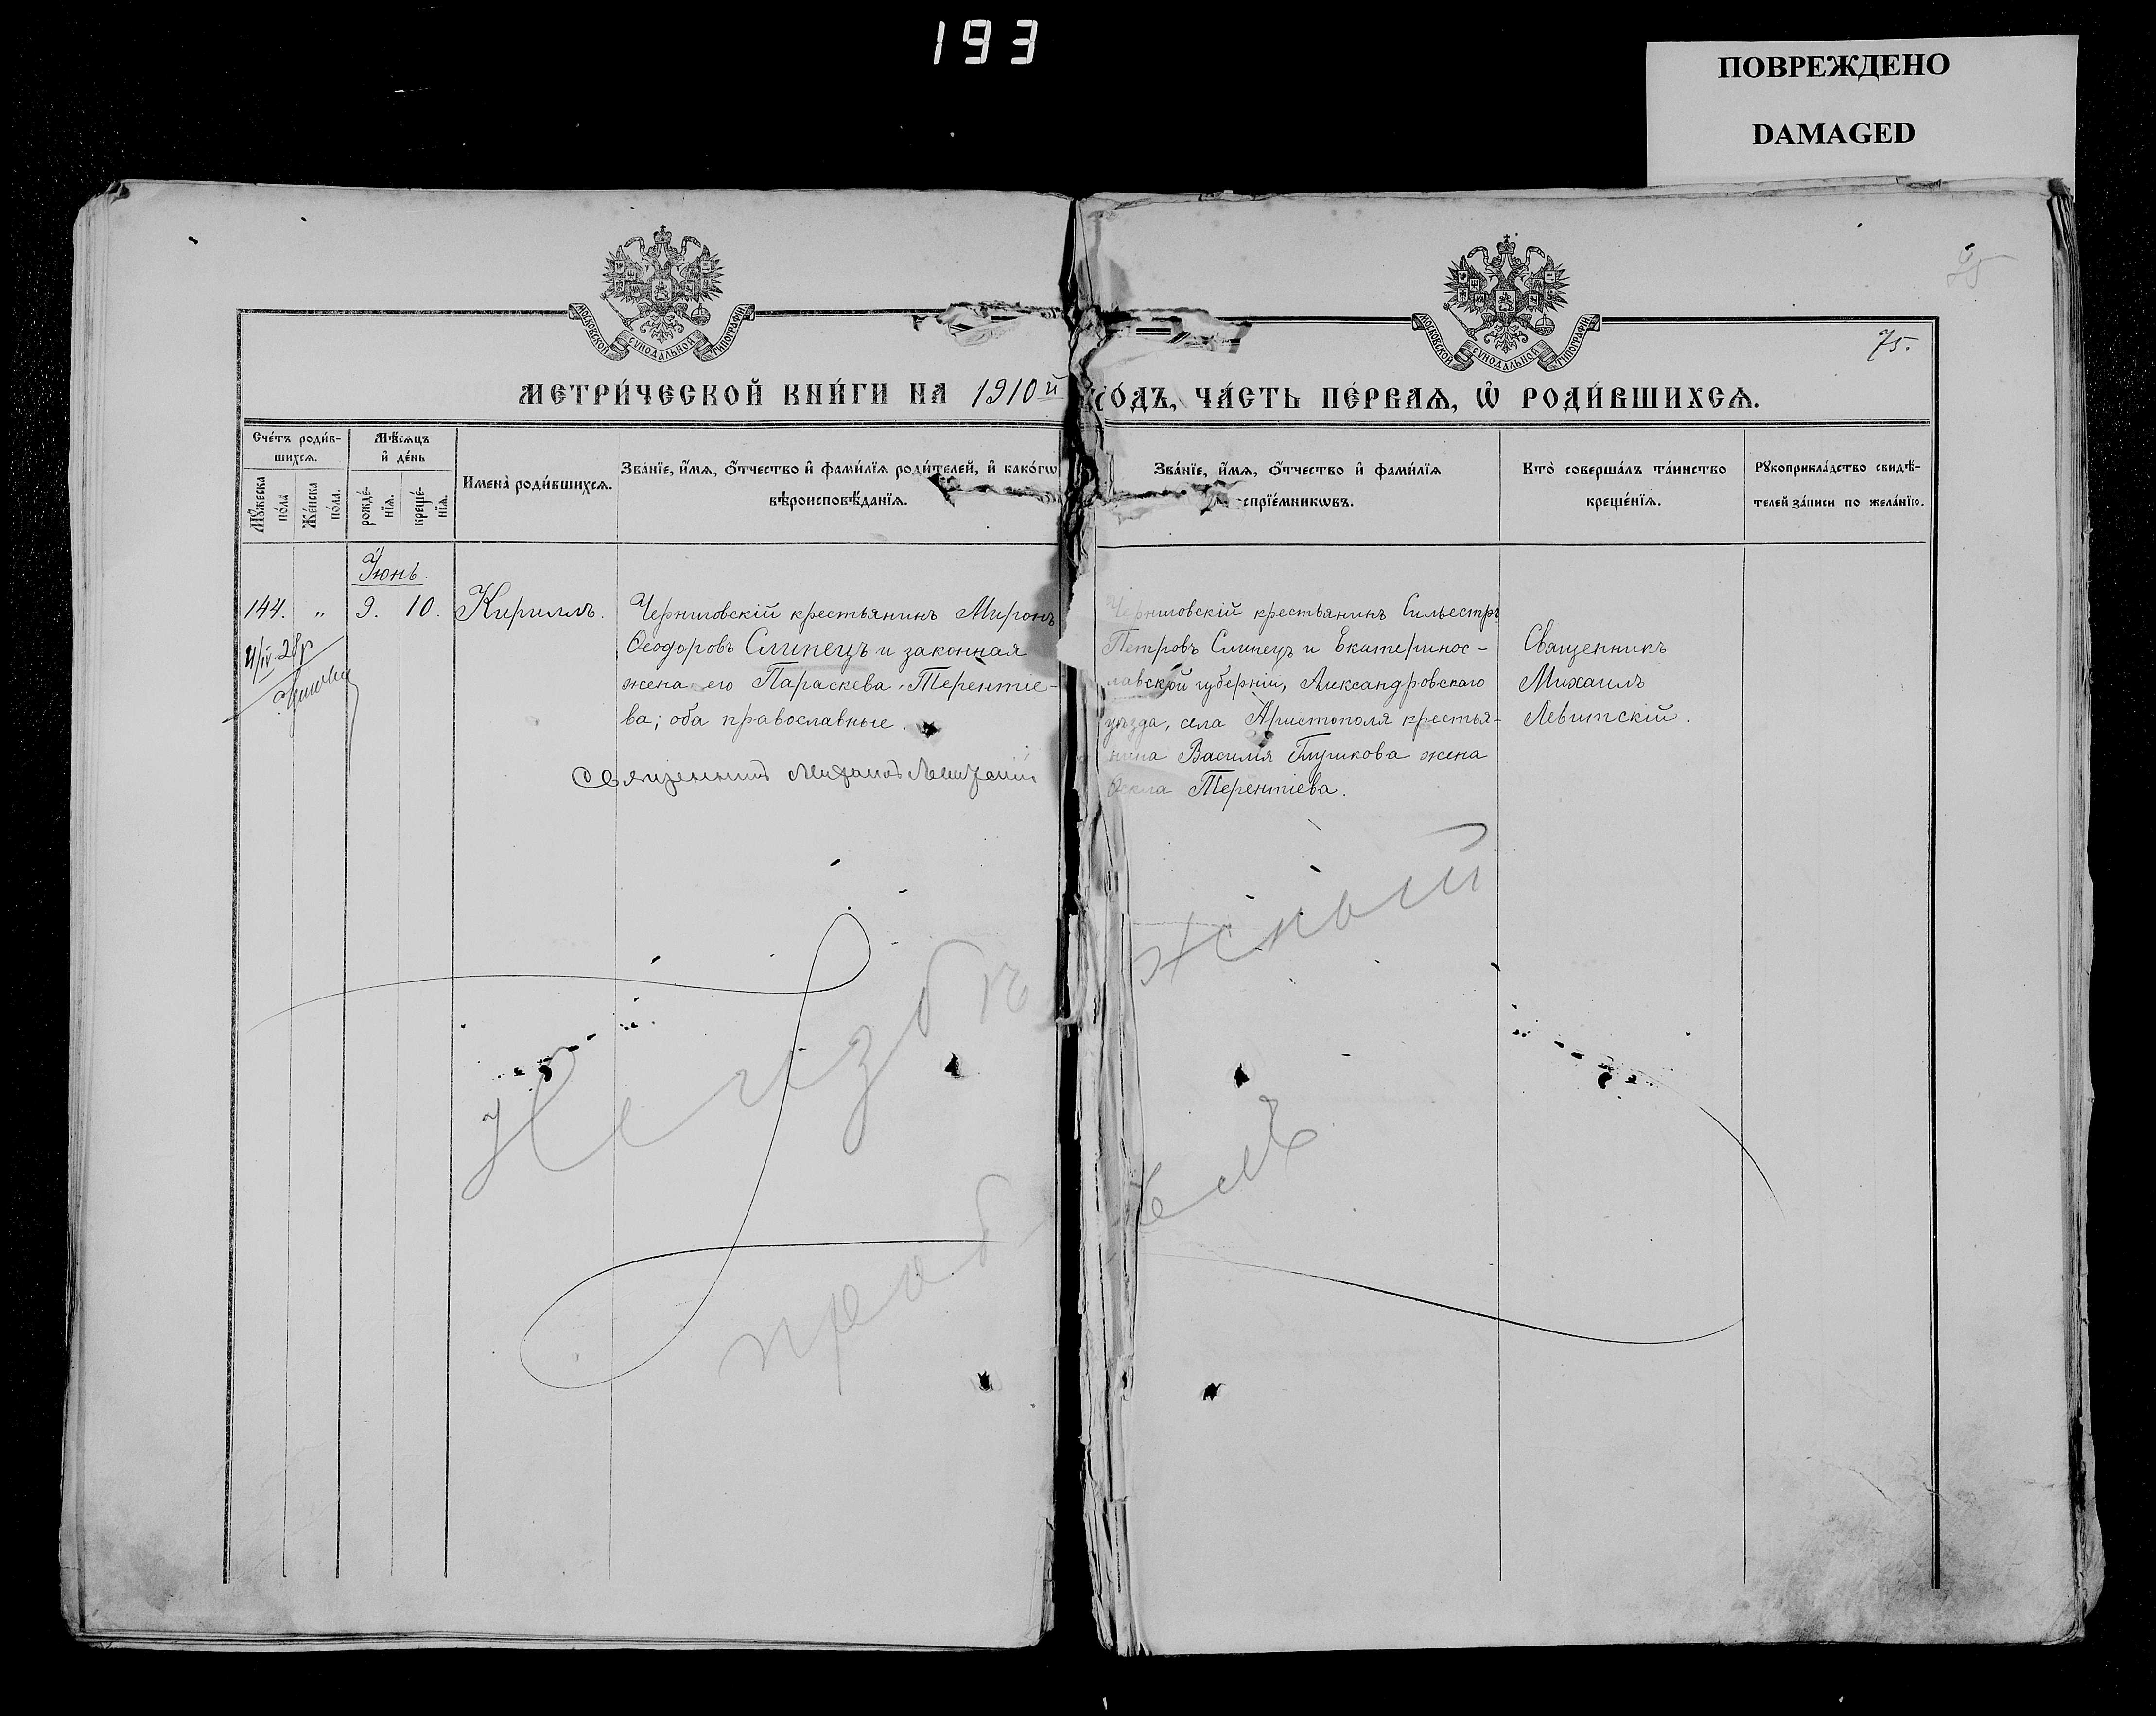 193
ПОВРЕЖДЕНО
DAMAGED
МОСКОВСКОЙ СѴНОДАЛЬНОЙ ТИПОГРАФІИ
МОСКОВСКОЙ СѴНОДАЛЬНОЙ ТИПОГРАФІИ
75.
МЕТРИ́ЧЕСКОЙ КНИ́ГИ НА 1910й ГО́ДЪ, ЧА́СТЬ ПЕ́РВАѦ, Ѡ РОДИ́ВШИХСѦ.
Сче́тъ роди́в-
шихсѧ.
Мꙋ́жеска по́ла
Же́нска по́ла.
Мѣ́сѧцъ
и де́нь
рожде́-нїѧ.
креще́-нїѧ.
Имена̀ роди́вшихсѧ.
Зва́нїе, и́мѧ, ѻ́тчество и фами́лїѧ роди́телей, и како́гѡ
вѣроисповѣ́данїѧ.
Зва́нїе, и́мѧ, ѻ́тчество и фами́лїѧ
спрїе́мникѡвъ.
Кто̀ соверша́лъ та́инство
креще́нїѧ.
Рꙋкоприкла́дство свидѣ́-
телей за́писи по жела́нїю.
Іюнь.
144. „ 9. 10. Кириллъ.
Черниговскій крестьянинъ Миронъ
Ѳеодоровъ Слипецъ и законная
жена его Параскева Терентіе-
ва; оба православные.
Священникъ Михаилъ Левитскій
Черниговскій крестьянинъ Сильестръ
Петровъ Слипецъ и Екатеринос-
лавской губерніи, Александровскаго
уѣзда, села Аристополя крестья-
нина Василія Глушкова жена
Ѳекла Терентіева.
Священникъ
Михаилъ
Левитскій.
Неизбѣжный
пробѣлъ